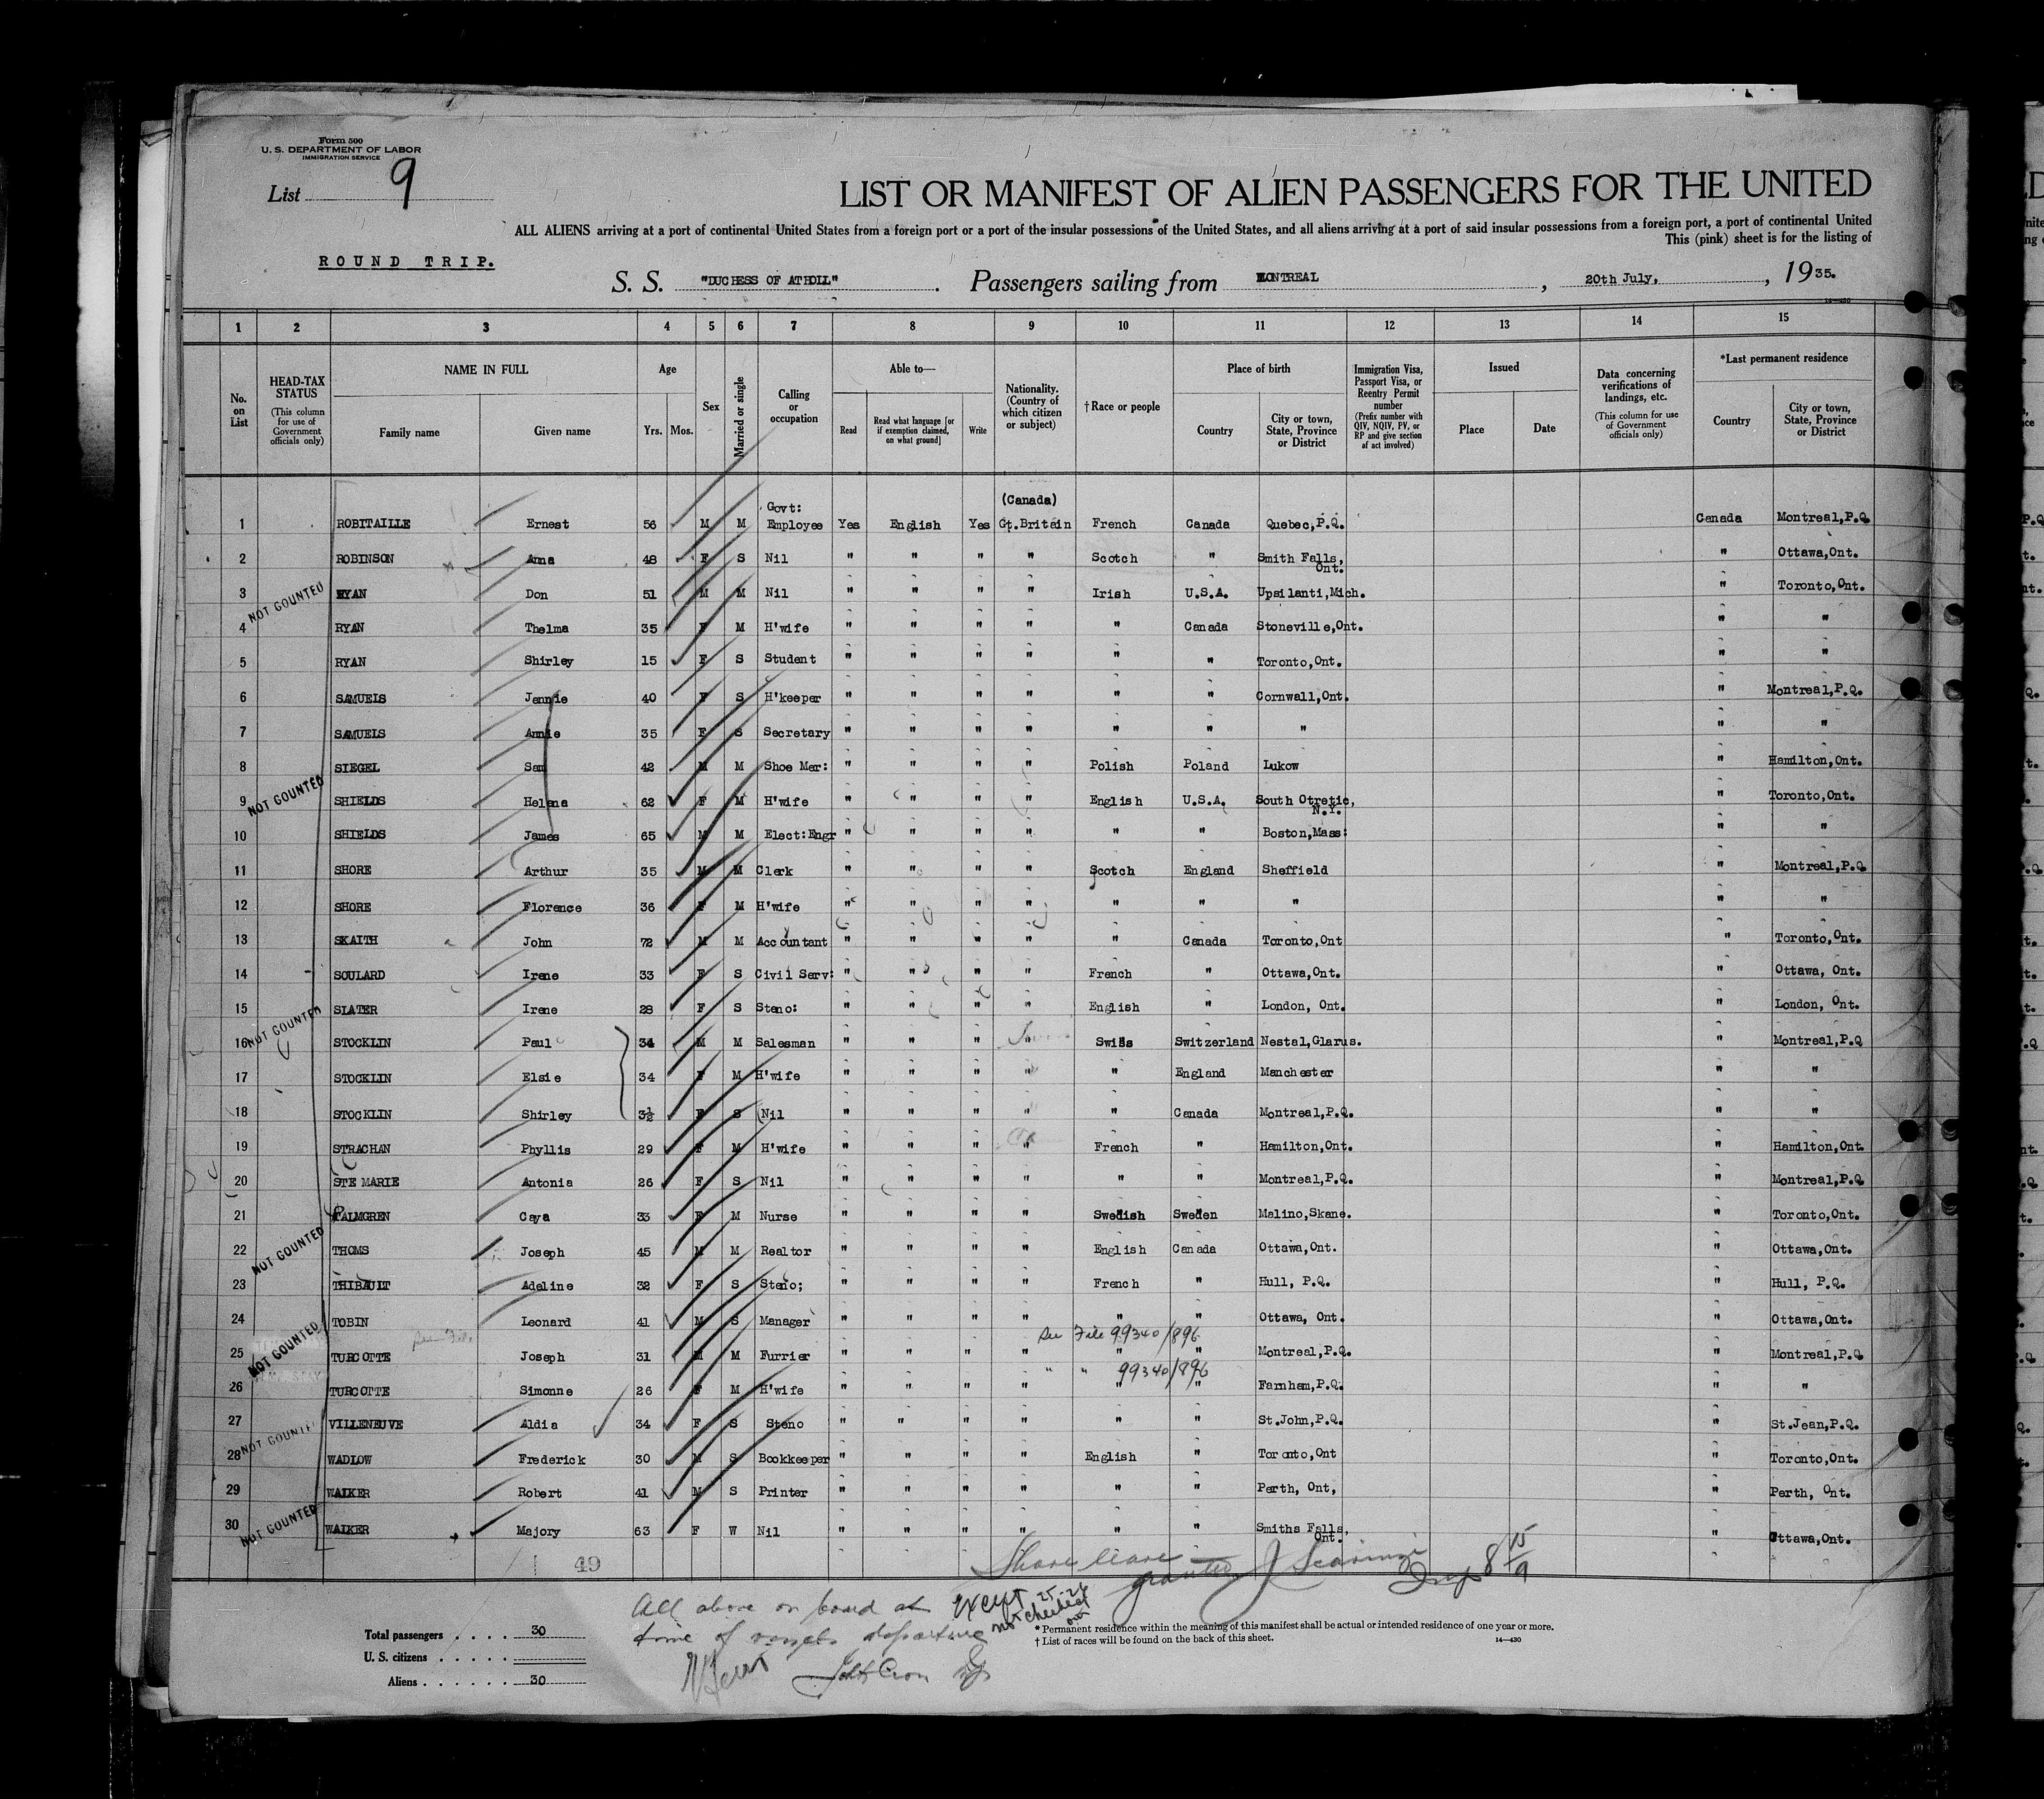 Form 500
U. S. DEPARTMENT OF LABOR
IMMIGRATION SERVICE
List 9
LIST OR MANIFEST OF ALIEN PASSENGERS FOR THE UNITED
ALL ALIENS arriving at a port of continental United States from a foreign port or a port of the insular possessions of the United States, and all aliens arriving at a port of said insular possessions from a foreign port, a port of continental United
This (pink) sheet is for the listing of
ROUND TRIP.
S. S. "DUCHESS OF ATHOLL". Passengers sailing from MONTREAL, 20th July, , 1935.
14—430
1 2 3 4 5 6 7 8 9 10 11 12 13 14 15
No. on List
HEAD-TAX STATUS (This column for use of Government officials only)
NAME IN FULL Family name Given name
Age Yrs. Mos.
Sex
Married or single
Calling or occupation
Able to— Read Read what language [or if exemption claimed, on what ground] Write
Nationality. (Country of which citizen or subject)
†Race or people
Place of birth Country City or town, State, Province or District
Immigration Visa, Passport Visa, or Reentry Permit number (Prefix number with QIV, NQIV, PV, or RP and give section of act involved)
Issued Place Date
Data concerning verifications of landings, etc. (This column for use of Government officials only)
*Last permanent residence Country City or town, State, Province or District
1 ROBITAILLE Ernest 56 M M Govt: Employee Yes English Yes (Canada) Gt.Britain French Canada Quebec,P.Q. Canada Montreal,P.Q
2 ROBINSON Anna 48 F S Nil " " " " Scotch " Smith Falls, Ont. " Ottawa,Ont.
NOT COUNTED
3 RYAN Don 51 M M Nil " " " " Irish U.S.A. Upsilanti,Mich. " Toronto,Ont.
4 RYAN Thelma 35 F M H'wife " " " " " Canada Stoneville,Ont. " "
5 RYAN Shirley 15 F S Student " " " " " " Toronto,Ont. " "
6 SAMUELS Jennie 40 F S H'keeper " " " " " " Cornwall,Ont. " Montreal,P.Q.
7 SAMUELS Annie 35 F S Secretary " " " " " " " " "
8 SIEGEL Sam 42 M M Shoe Mer: " " " " Polish Poland Lukow " Hamilton,Ont.
NOT COUNTED
9 SHIELDS Helena 62 F M H'wife " " " " English U.S.A. South Otretic, N.Y. " Toronto,Ont.
10 SHIELDS James 65 M M Elect:Engr " " " " " " Boston,Mass: " "
11 SHORE Arthur 35 M M Clerk " " " " Scotch England Sheffield " Montreal,P.Q
12 SHORE Florence 36 F M H'wife " " " " " " " " "
13 SKAITH John 72 M M Accountant " " " " " Canada Toronto,Ont " Toronto,Ont.
14 SOULARD Irene 33 F S Civil Serv: " " " " French " Ottawa,Ont. " Ottawa, Ont.
15 SLATER Irene 28 F S Steno: " " " " English " London, Ont. " London, Ont.
NOT COUNTED
16 STOCKLIN Paul 34 M M Salesman " " " " Swiss Switzerland Nestal,Glarus. " Montreal,P.Q
17 STOCKLIN Elsie 34 F M H'wife " " " " " England Manchester " "
18 STOCKLIN Shirley 3½ F S Nil " " " " " Canada Montreal,P.Q. " "
19 STRACHAN Phyllis 29 F M H'wife " " " " French " Hamilton,Ont. " Hamilton,Ont.
20 STE MARIE Antonia 26 F S Nil " " " " " " Montreal,P.Q. " Montreal,P.Q
21 PALMGREN Caya 33 F M Nurse " " " " Swedish Sweden Malino,Skane. " Toronto,Ont.
NOT COUNTED
22 THOMS Joseph 45 M M Realtor " " " " English Canada Ottawa,Ont. " Ottawa,Ont.
23 THIBAULT Adeline 32 F S Steno; " " " " French " Hull, P.Q. " Hull, P.Q.
24 TOBIN Leonard 41 M S Manager " " " " " " Ottawa, Ont. " Ottawa,Ont.
See File 99340/896
NOT COUNTED
25 TURCOTTE See File Joseph 31 M M Furrier " " " " " " Montreal,P.Q. " Montreal,P.Q
" " 99340/896
26 TURCOTTE Simonne 26 F M H'wife " " " " " " Farnham,P.Q. " "
27 VILLENEUVE Aldia 34 F S Steno " " " " " " St.John,P.Q. " St.Jean,P.Q.
NOT COUNTED
28 WADLOW Frederick 30 M S Bookkeeper " " " " English " Toronto,Ont " Toronto,Ont.
29 WALKER Robert 41 M S Printer " " " " " " Perth, Ont, " Perth, Ont.
NOT COUNTED
30 WALKER Majory 63 F W Nil " " " " " " Smiths Falls, Ont. " Ottawa,Ont.
49
Shore leave granted
8 15/9
All above on board at
time of vessels departure
except 25-26
not checked out
Total passengers . . . . 30
U. S. citizens . . . . .
Aliens . . . . . . 30
* Permanent residence within the meaning of this manifest shall be actual or intended residence of one year or more.
† List of races will be found on the back of this sheet.
14—430